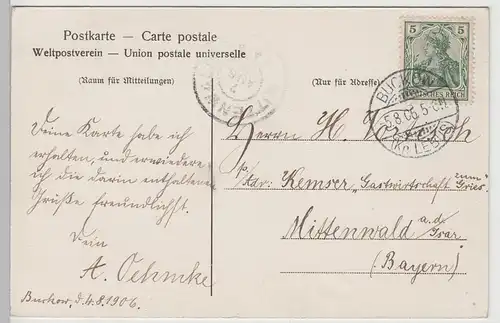 Postkarte — Carte postale
Weltpostverein — Union postale universelle
(Raum für Mitteilungen)
(Nur für Adresse)
5 5
DEUTSCHES REICH
BUCKOW
5.8.06.5-6N
(Kr. LEB.)
Deine Karte habe ich
erhalten, und erwiedere
ich die darin enthaltenen
Grüße freundlichst.
Dein
A. Oehmke
Buckow, d. 4.8.1906.
Herrn H.
p. Adr: Kemser „Gastwirtschaft zum Gries"
Mittenwald a.d. Isar
(Bayern)